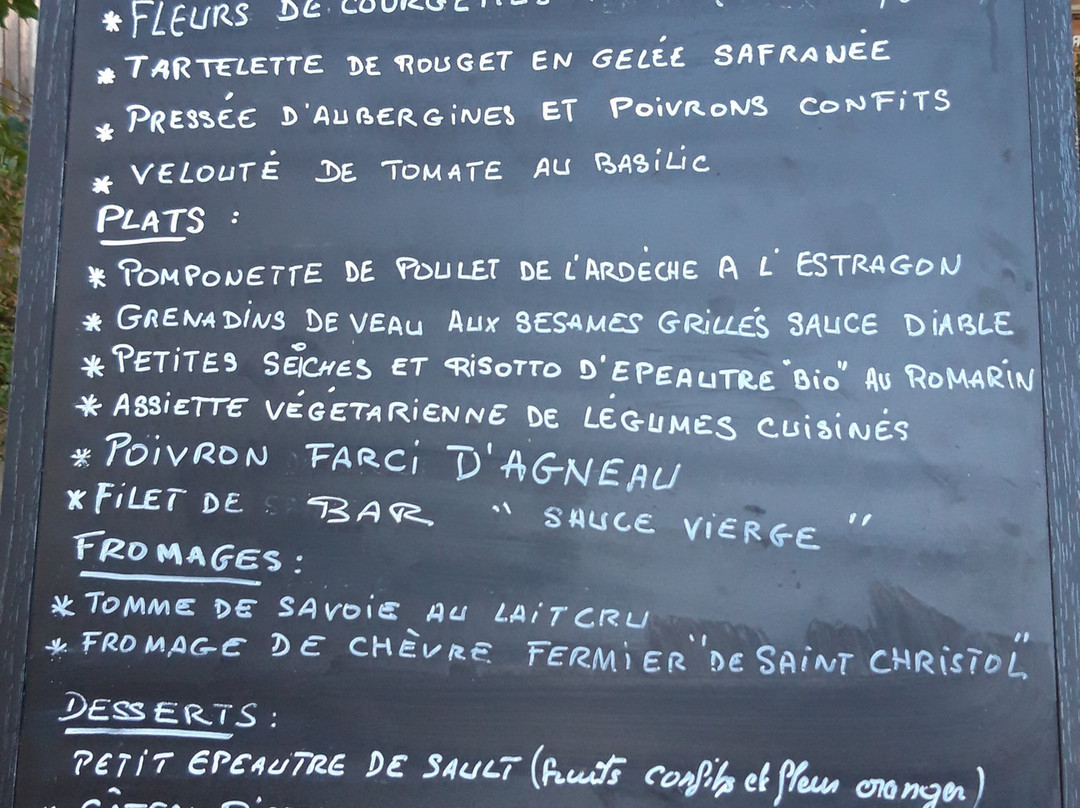 * FLEURS DE COURGETTES
* TARTELETTE DE ROUGET EN GELÉE SAFRANÉE
* PRESSÉE D'AUBERGINES ET POIVRONS CONFITS
* VELOUTÉ DE TOMATE AU BASILIC
PLATS :
* POMPONETTE DE POULET DE L'ARDÈCHE A L'ESTRAGON
* GRENADINS DE VEAU AUX SESAMES GRILLÉS SAUCE DIABLE
* PETITES SEICHES ET RISOTTO D'EPEAUTRE "BIO" AU ROMARIN
* ASSIETTE VÉGÉTARIENNE DE LÉGUMES CUISINÉS
* POIVRON FARCI D'AGNEAU
* FILET DE BAR "SAUCE VIERGE"
FROMAGES :
* TOMME DE SAVOIE AU LAIT CRU
* FROMAGE DE CHÈVRE FERMIER "DE SAINT CHRISTOL"
DESSERTS :
PETIT EPEAUTRE DE SAULT (fruits confits et fleur oranger)